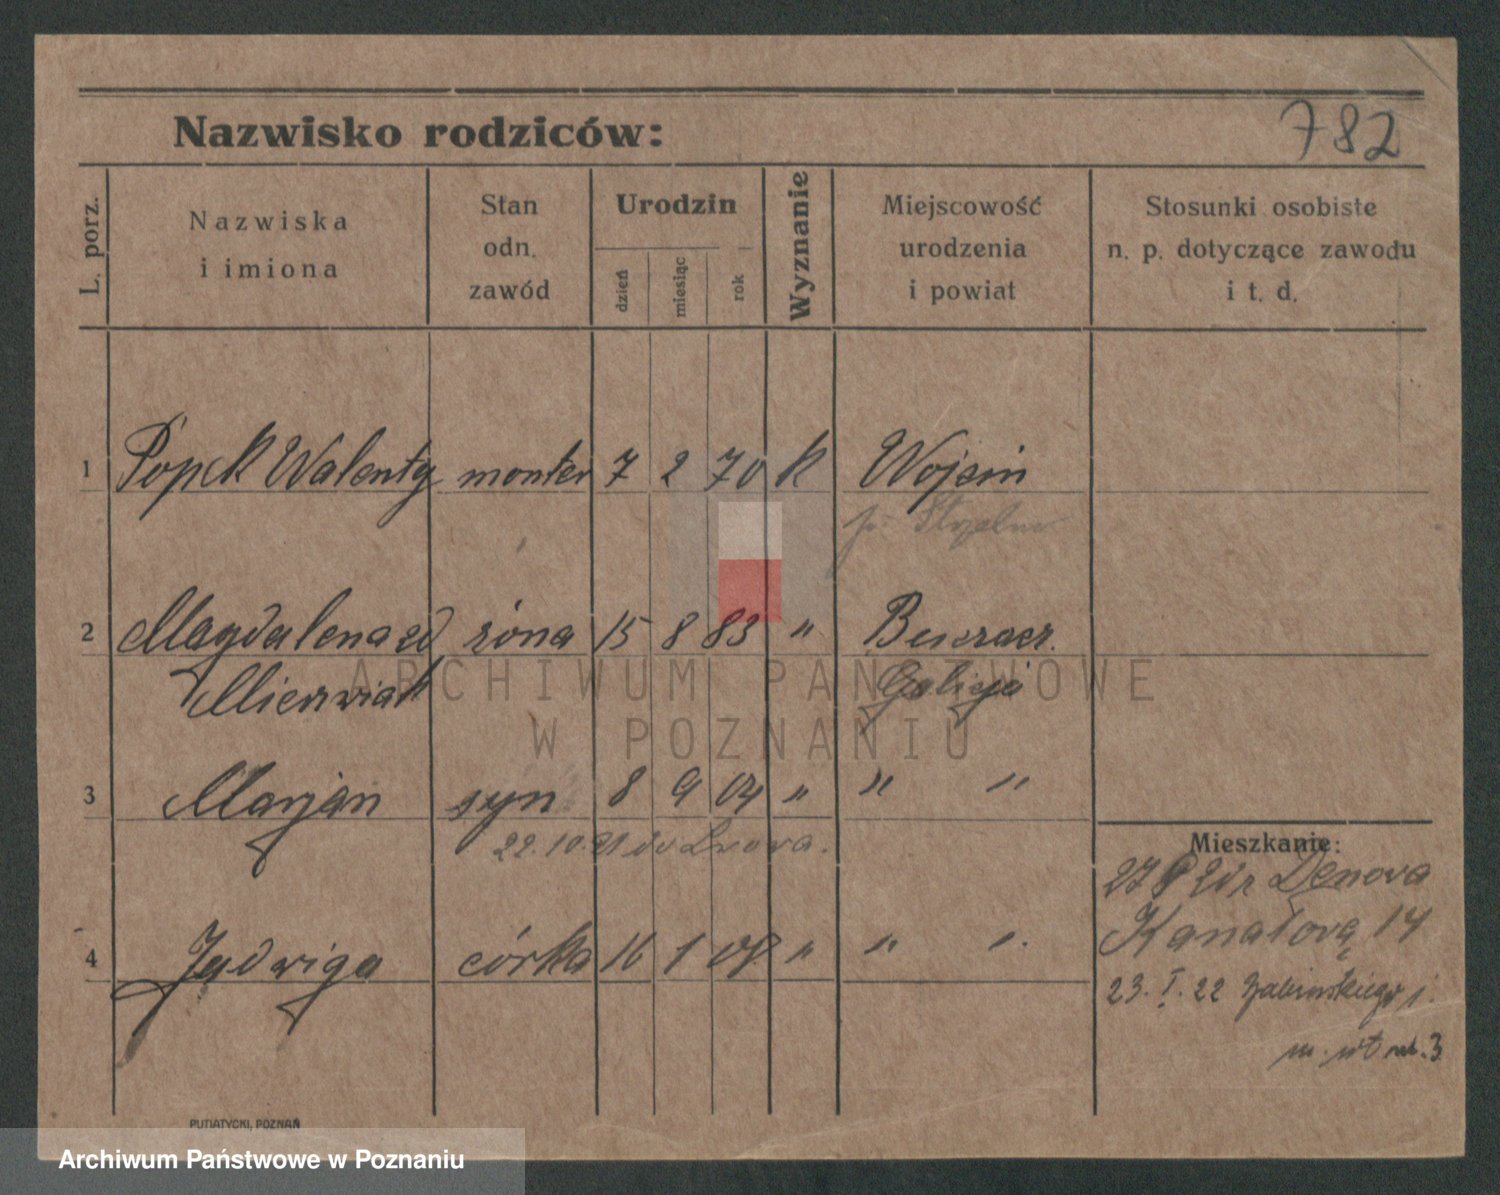 782
Nazwisko rodziców:
L. porz.
Nazwiska
i imiona
Stan
odn.
zawód
Urodzin
dzień
miesiąc
rok
Wyznanie
Miejscowość
urodzenia
i powiat
Stosunki osobiste
n. p. dotyczące zawodu
i t. d.
1 Popek Walenty monter 7 2 70 k Wojcin
p. Strzelno
2 Magdalena zd żona 15 8 83 " Buczacz.
Mierzwiak Galicja
ARCHIWUM PAŃSTWOWE
W POZNANIU
3 Marjan syn 8 9 04 " " "
22.10.21 do Lwowa.
4 Jadwiga córka 16 1 08 " " "
Mieszkanie:
27
Kanałowa 14
23. I. 22
3
PUTIATYCKI, POZNAŃ
Archiwum Państwowe w Poznaniu